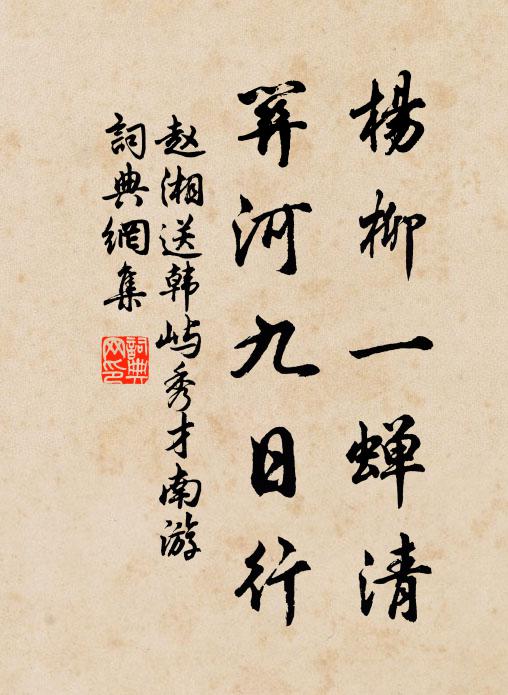 楊柳一蝉清
笄河九日行
赵湘送韩屿秀才南游
詞典網集
詞典网印